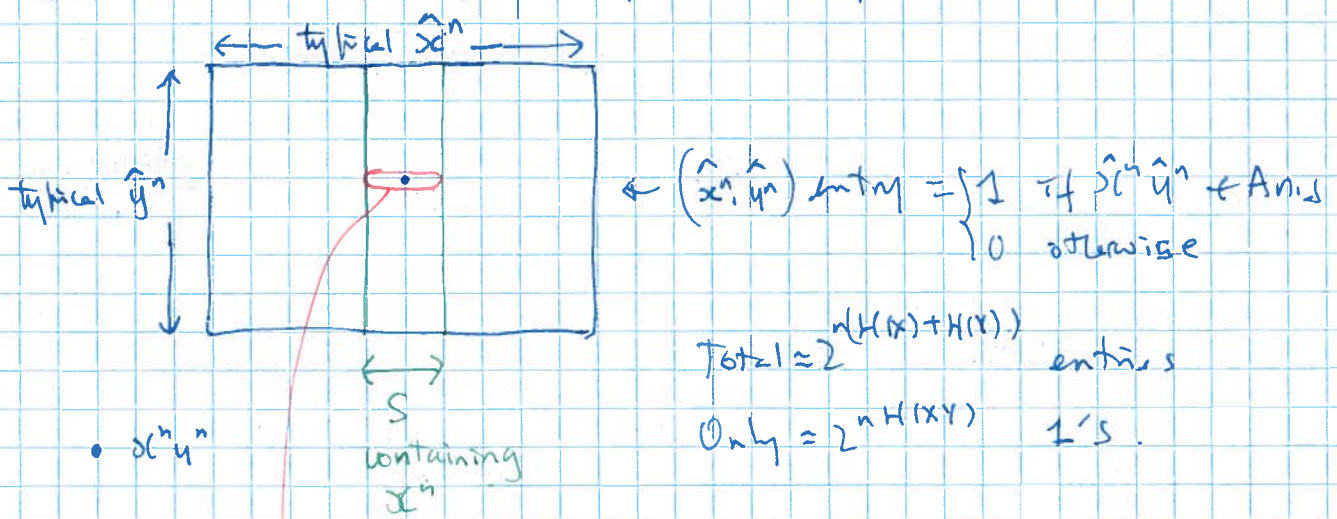 typical x̂ⁿ
typical ŷⁿ
← (x̂ⁿ, ŷⁿ) entry = { 1 if x̂ⁿ ŷⁿ ∈ Aₙ,δ
0 otherwise
Total ≈ 2^{n(H(X)+H(Y))} entries
Only ≈ 2^{nH(XY)} 1's.
S
containing
xⁿ
• xⁿyⁿ